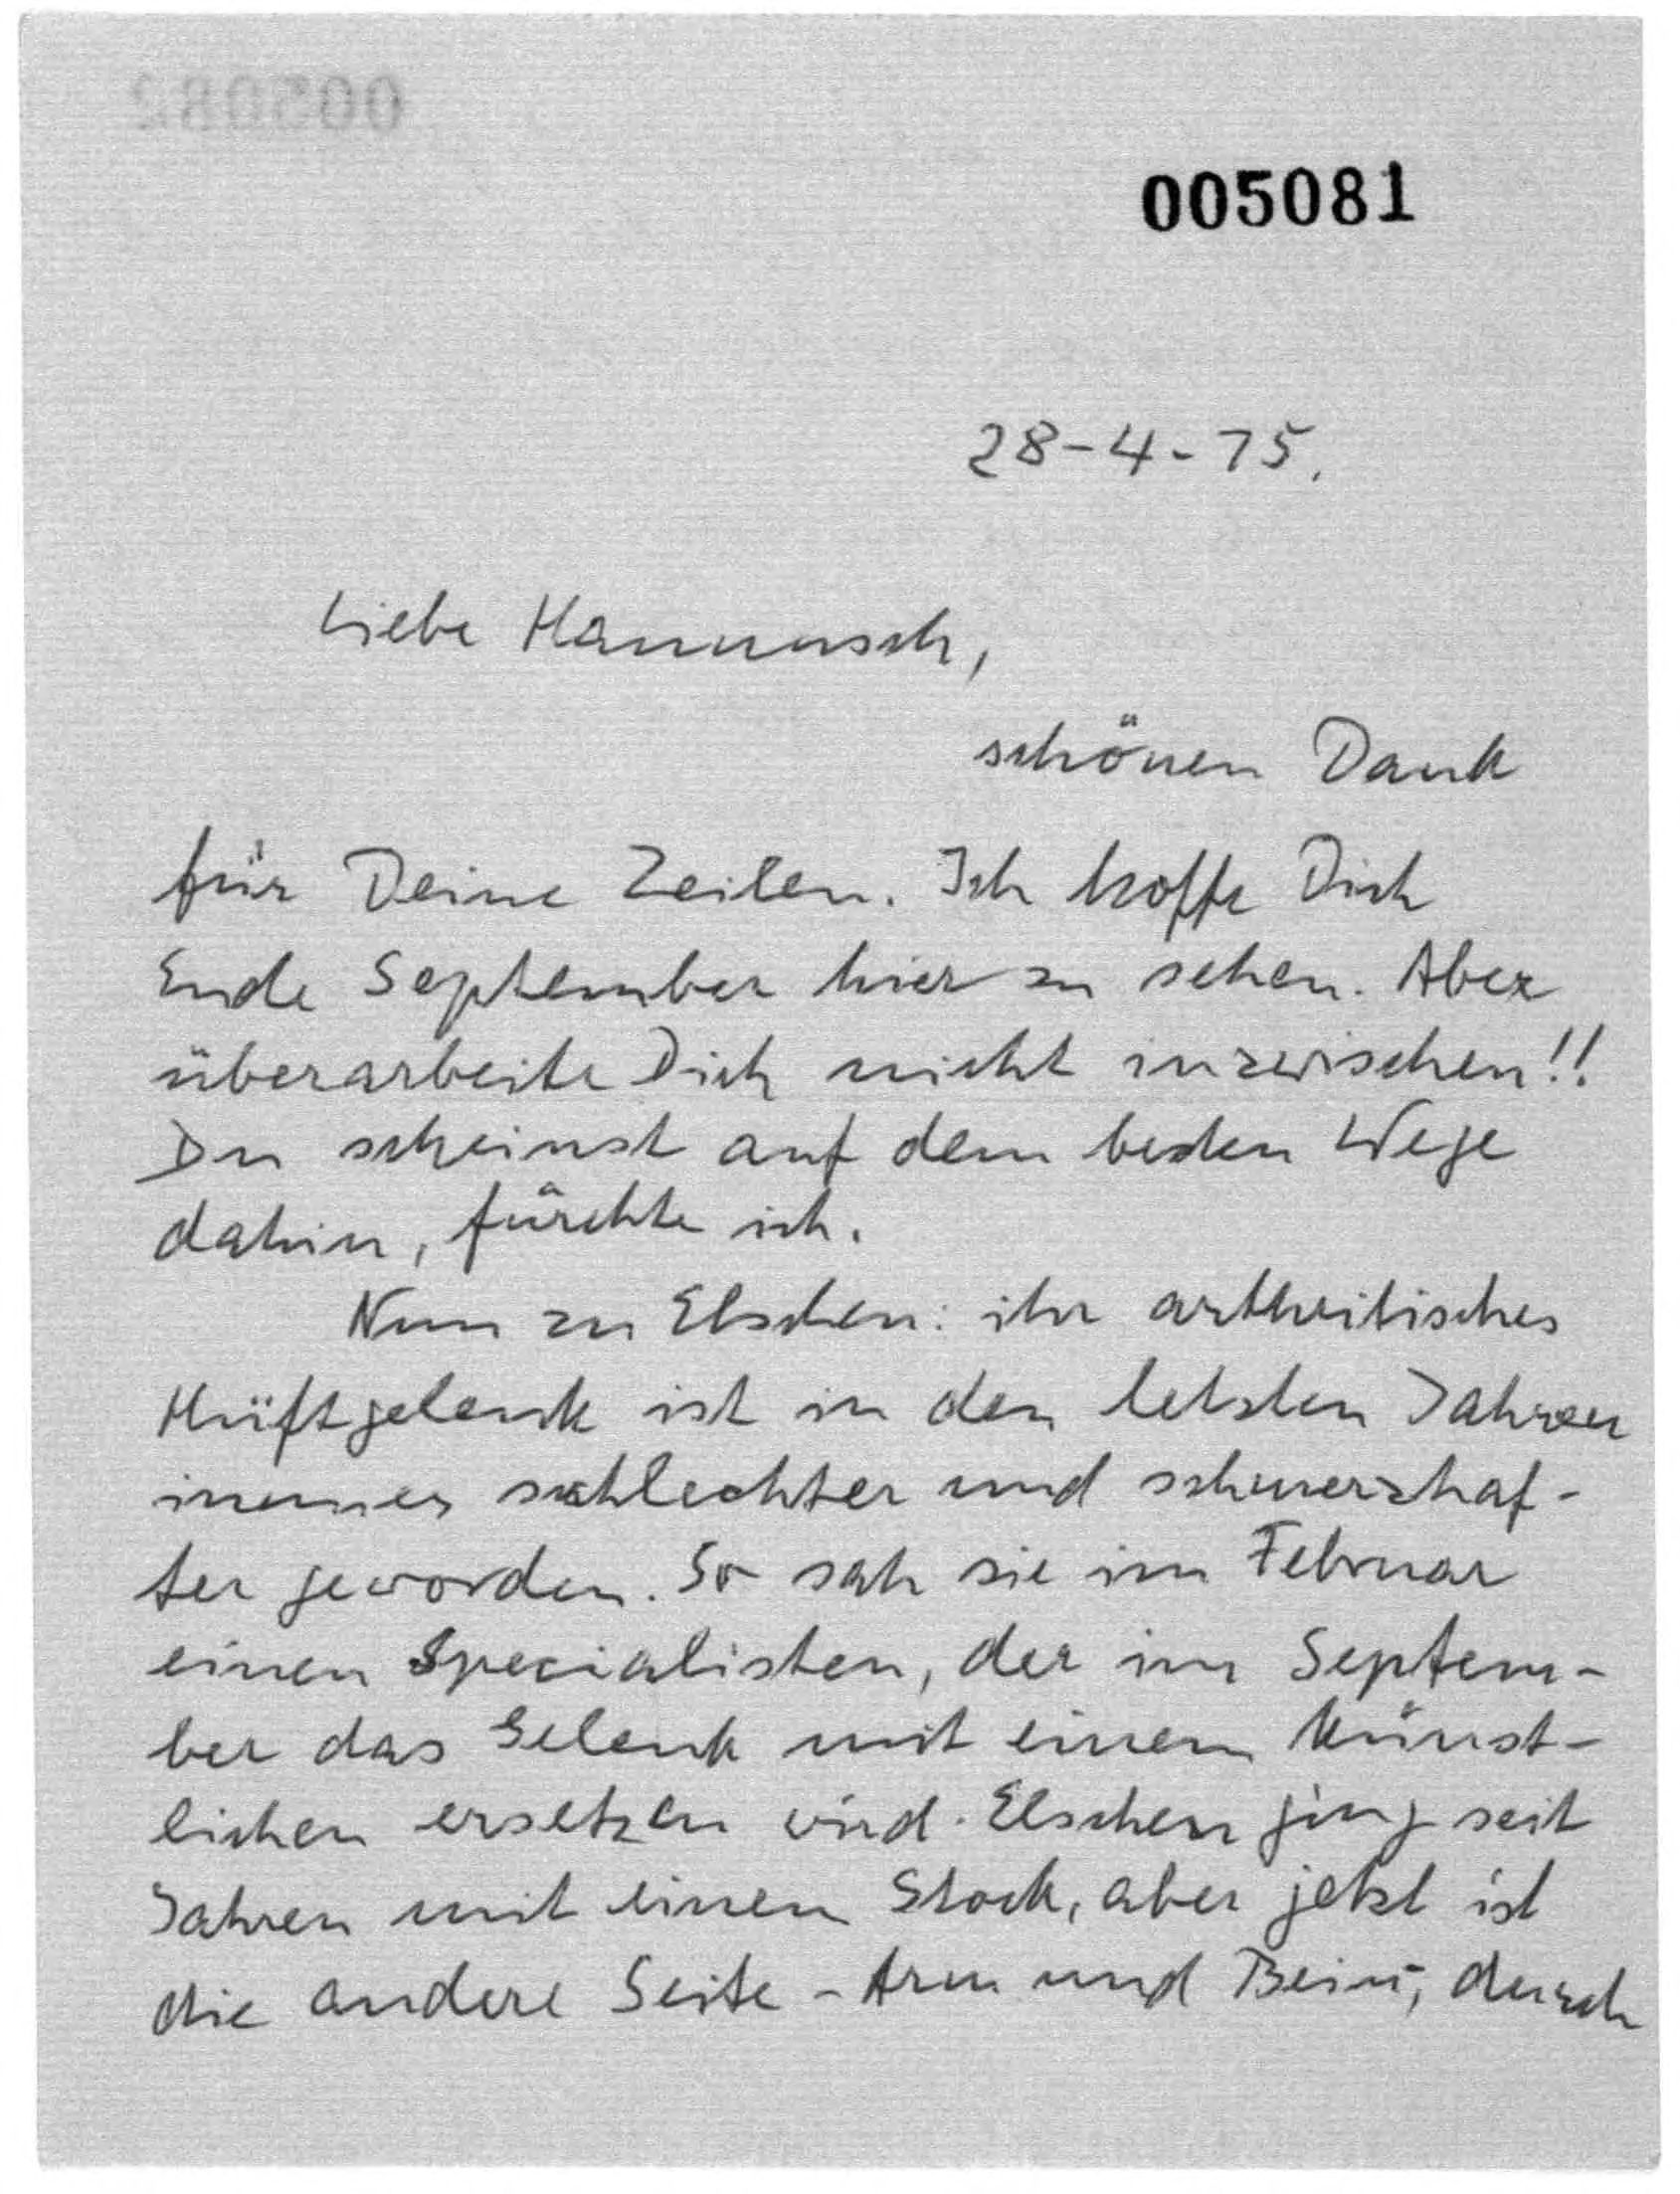 005082
005081
28-4-75.
Liebe Hannusch,
schönen Dank
für Deine Zeilen. Ich hoffe Dich
Ende September hier zu sehen. Aber
überarbeite Dich nicht inzwischen!!
Du scheinst auf dem besten Wege
dahin, fürchte ich.
Nun zu Elschen: ihr arthritisches
Hüftgelenk ist in den letzten Jahren
immer schlechter und schmerzhaf-
ter geworden. So sah sie im Februar
einen Specialisten, der im Septem-
ber das Gelenk mit einem künst-
lichen ersetzen wird. Elschen ging seit
Jahren mit einem Stock, aber jetzt ist
die andere Seite - Arm und Bein -, durch